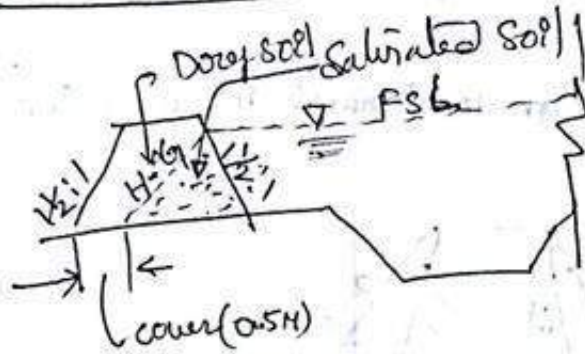 Dorey soil Saturated Soil
FSL
H.G
1½:1
½:1
cover (0.5M)